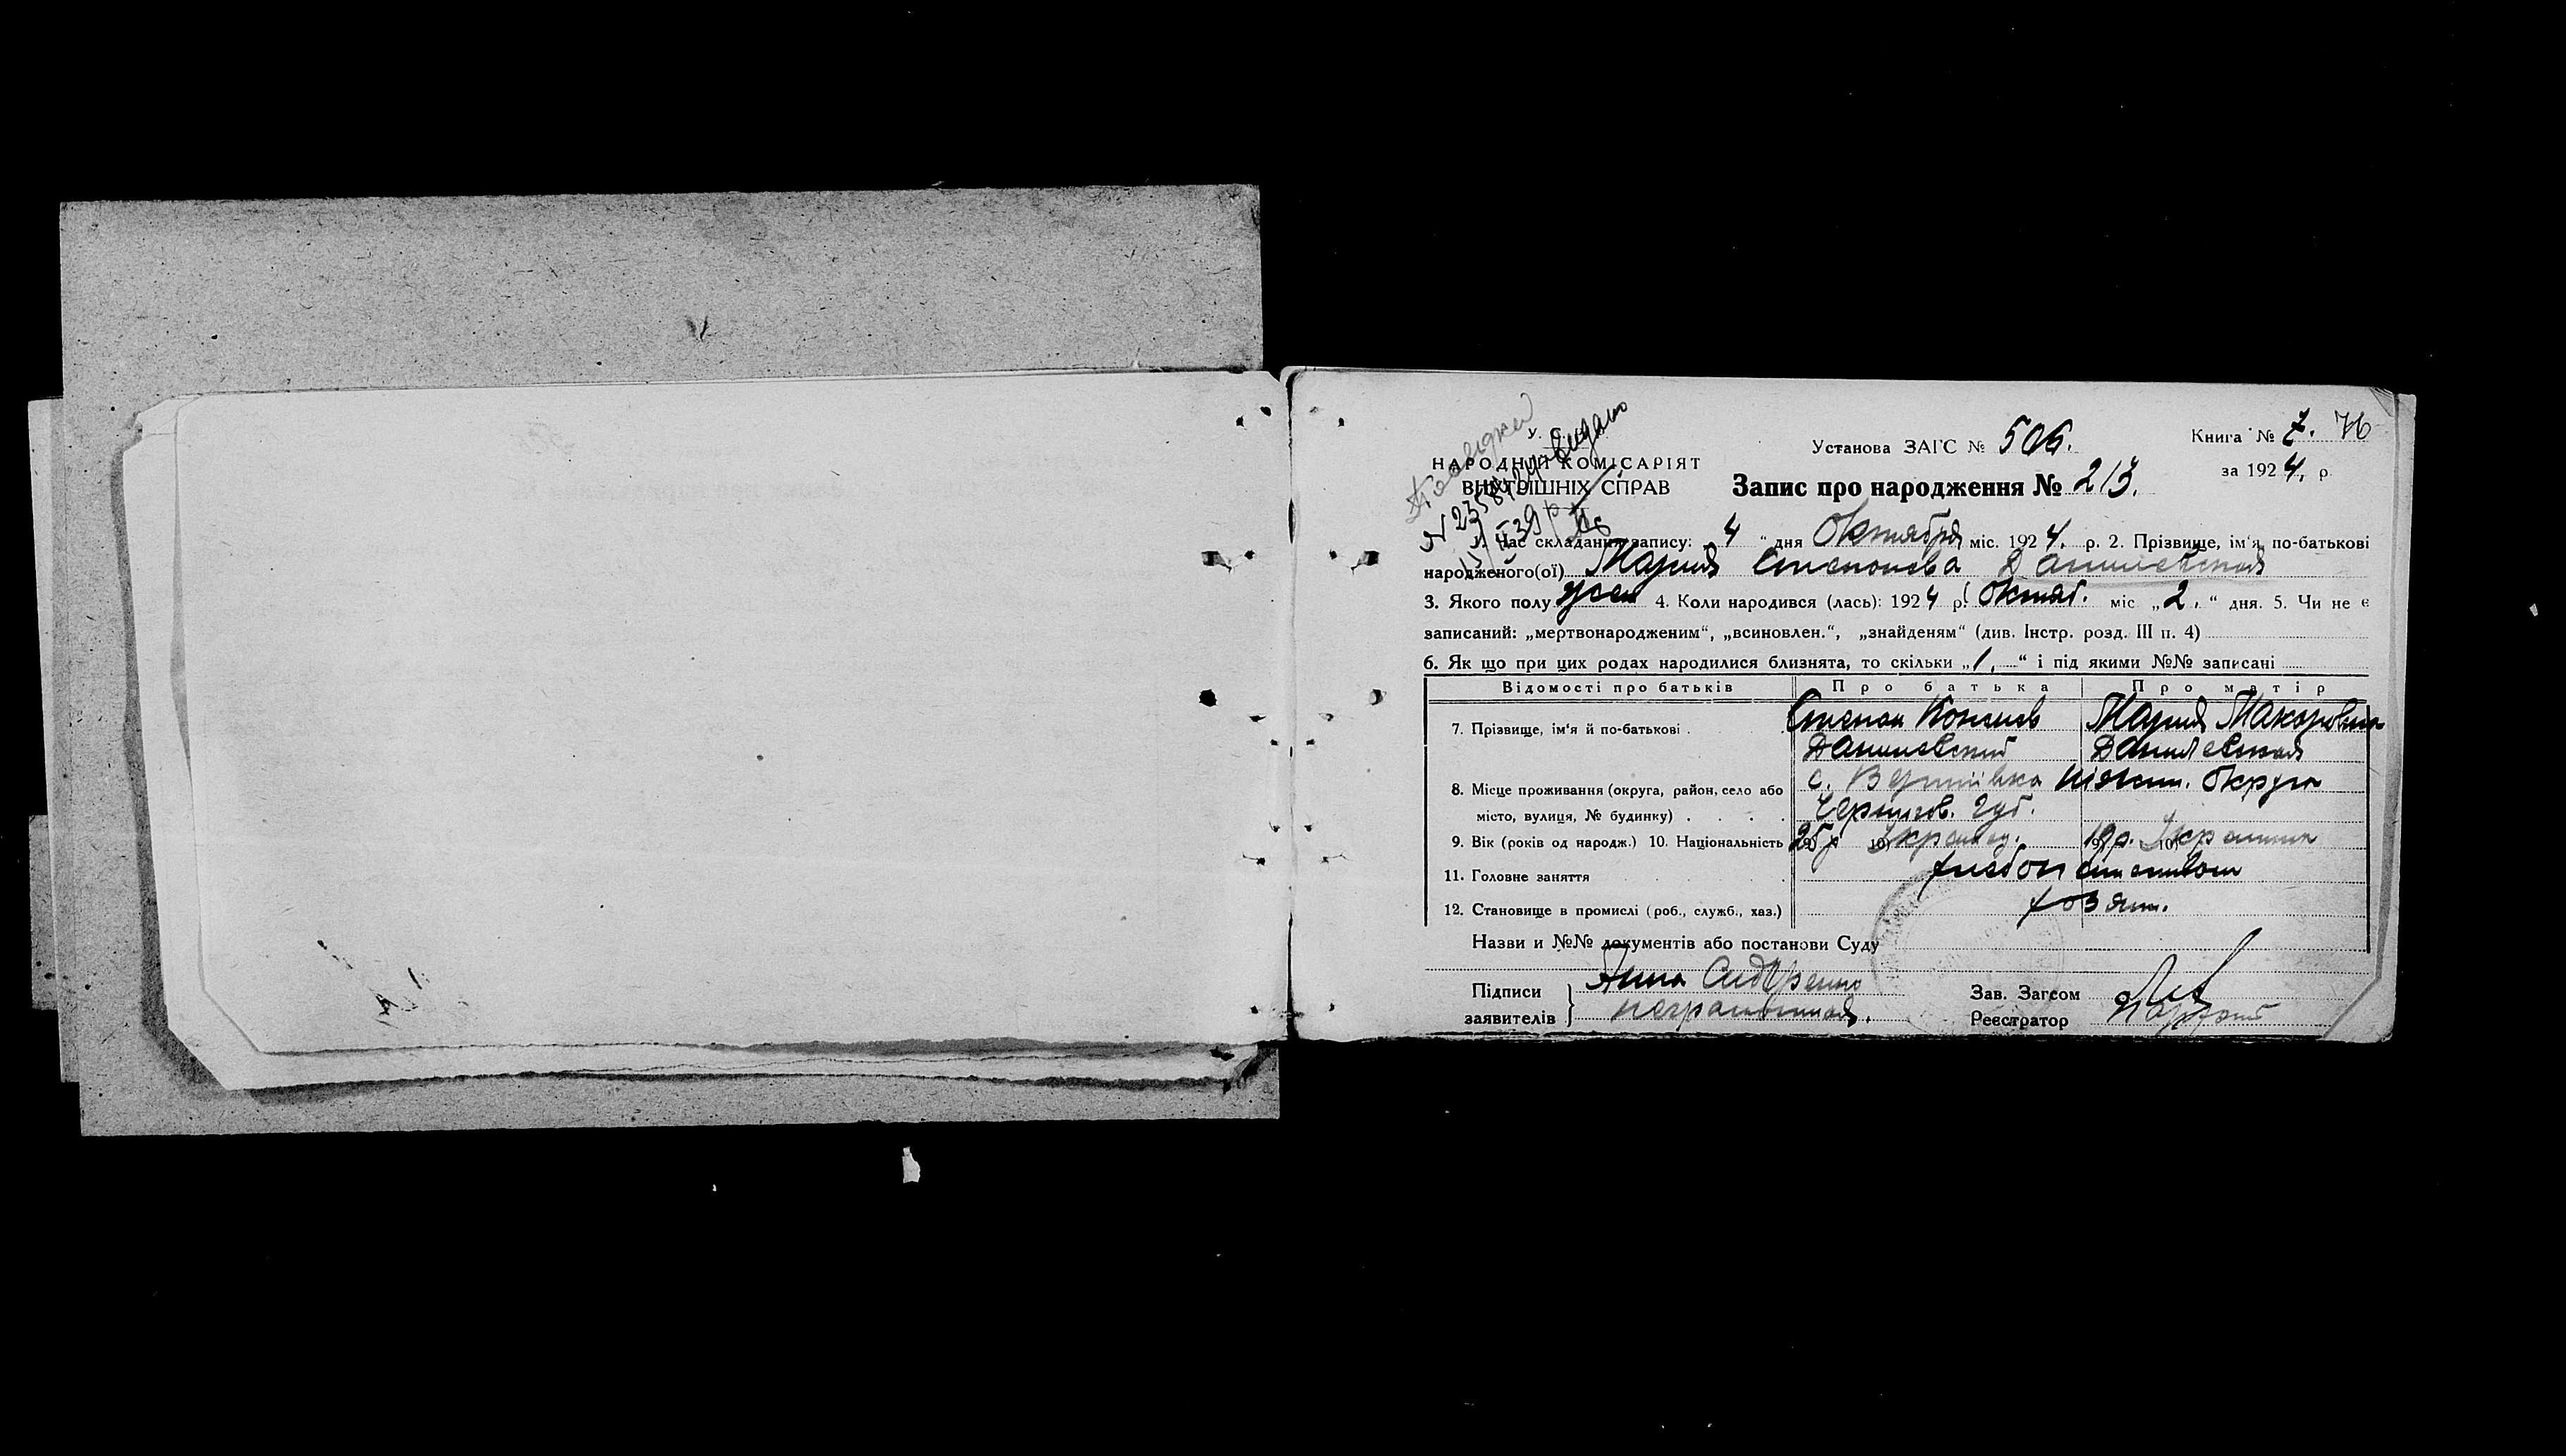 Посвідку
№ 23584 видано
У.
НАРОДНИЙ КОМІСАРІЯТ
ВНУТРІШНІХ СПРАВ
Установа ЗАГС № 506.
Книга № 7. 76
за 1924. р.
Запис про народження № 213.
1. Час складання запису: 4 " дня Октября міс. 1924. р. 2. Прізвище, ім'я, по-батькові
народженого(ої) Мария Степановa Данилевская
3. Якого полу жен 4. Коли народився (лась): 1924 р. Октяб. міс „2." дня. 5. Чи не є
записаний: „мертвонародженим", „всиновлен.", „знайденям" (див. Інстр. розд. III п. 4)
6. Як що при цих родах народилися близнята, то скільки „1." і під якими №№ записані
Відомості про батьків Про батька Про матір
7. Прізвище, ім'я й по-батькові . Степан Данилевский Мария Макаровна Данилевская
8. Місце проживання (округа, район, село або
місто, вулиця, № будинку) . . . . с. Вертіївка Ніжин. Округа
Чернигов. Губ.
9. Вік (років од народж.) 10. Національність 9) 25 р 10) Украинец. 9) 19 р. 10) Украинка
11. Головне заняття хлебопашеством
12. Становище в промислі (роб., служб., хаз.) хозяин.
Назви и №№ документів або постанови Суду
Підписи
заявителів } Анна Сидоренко
неграмотная.
Зав. Загсом
Реєстратор